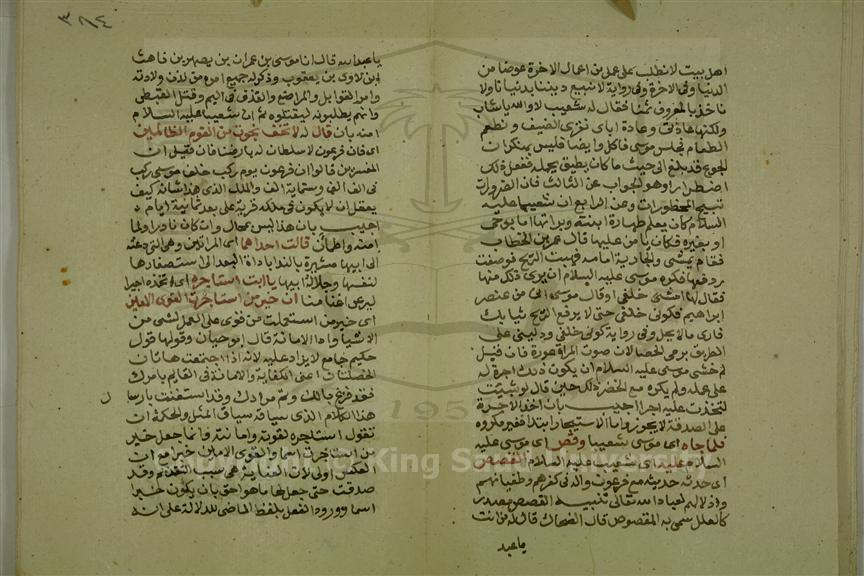 اهل بيت لا نطلب على عمل من اعمال الاخرة عوضا من
الدنيا وفى الاخرة وفى رواية لا نبيع ديننا بدنيانا ولا
ناخذ بالمعروف ثمنا فقال له شعيب لا والله يا شاب
ولكنها عادتى وعادة اباى نقرى الضيف ونطعم
الطعام فجلس موسى فاكل وايضا فليس بمنكران
الجوع قد بلغ الى حيث ما كان يطيق يحمله ففعل ذلك
اضطرارا وهو الجواب عن الثالث فان الضرورات
تبيح المحظورات وعن الرابع ان شعيبا عليه
السلام كان يعلم طهارة ابنته وبراتها اما بوحى
او بغيره فكان يامن عليها قال عمر بن الخطاب
فقام يمشى والجارية امامه فهبت الريح فوصفت
ردفها فكره موسى عليه السلام ان يرى ذلك منها
فقال لها امشى خلفى او قال موسى انى من عنصر
ابراهيم فكونى خلفى حتى لا يرفع الريح ثيابك
فارى ما لا يحل وفى رواية كونى خلفى ودلينى على
الطريق برمى الحصا لان صوت المراة عورة فان قيل
لم خشى موسى عليه السلام ان يكون ذلك اجرة له
على عمله ولم يكره مع الخضر ذلك حين قال لو شيت
لتخذت عليه اجرا اجيب بان اخذ الاجرة
على الصدقة لا يجوز واما الاستيجار ابتدا فغير مكروه
فلما جاه اى موسى شعيبا وقص اى موسى عليه
السلام عليه اى شعيب عليه السلام القصص
اى حدثه حديثه مع فرعون واله فى كفرهم وطغيانهم
واذلالهم لعباد الله تعالى تنبيه القصص مصدر
كالعلل سمى به المقصوص قال الضحاك قال له من انت
يا عبد
٣٨٤
يا عبد الله قال انا موسى بن عمران بن يصهر بن قاهث
ابن لاوى بن يعقوب وذكر له جميع امره من لدن ولادته
وامر القوابل والمراضع والقذف فى اليم وقتل القبطى
وانهم يطلبونه ليقتلوه ثم ان شعيبا عليه السلام
امنه بان قال له لا تخف نجوت من القوم الظالمين
اى فان فرعون لا سلطان له بارضنا فان قيل ان
المفسرين قالوا ان فرعون يوم ركب خلف موسى ركب
فى الف الف وستماية الف والملك الذى هذا شانه كيف
يعقل ان لا يكون فى ملكه قرية على بعد ثمانية ايام
اجيب بان هذا ليس بمحال وان كان نادرا ولما
امنه واطمان قالت احداهما اى المراتين وهى التى دعته
الى ابيها مشيرة بالندا باداة البعد الى استصغارها
لنفسها وجلالة ابيها يا ابت استاجره اى اتخذه اجيرا
ليرعى اغنامنا ان خير من استاجرت القوى الامين
اى خير من استعملت من قوى على العمل لشى من
الاشيا واداء الامانة قال ابو حيان وقولها قول
حكيم جامع لا يزاد عليه لانه اذا اجتمعت هاتان
الخصلتان اعنى الكفاية والامانة فى القايم بامرك
فقد فرغ بالك وتم مرادك وقد استغنت بارسال
هذا الكلام الذى سياقه سياق المثل والحكمة ان
تقول استاجره لقوته وامانته وانما جعل خير
من استاجرت اسما والقوى الامين خبرا مع ان
العكس اولى لان العناية هى سبب التقديم وقد
صدقت حتى جعل لها ما هو احق بان يكون خبرا
اسما وورود الفعل بلفظ الماضى للدلالة على انه
King Saud University
1957